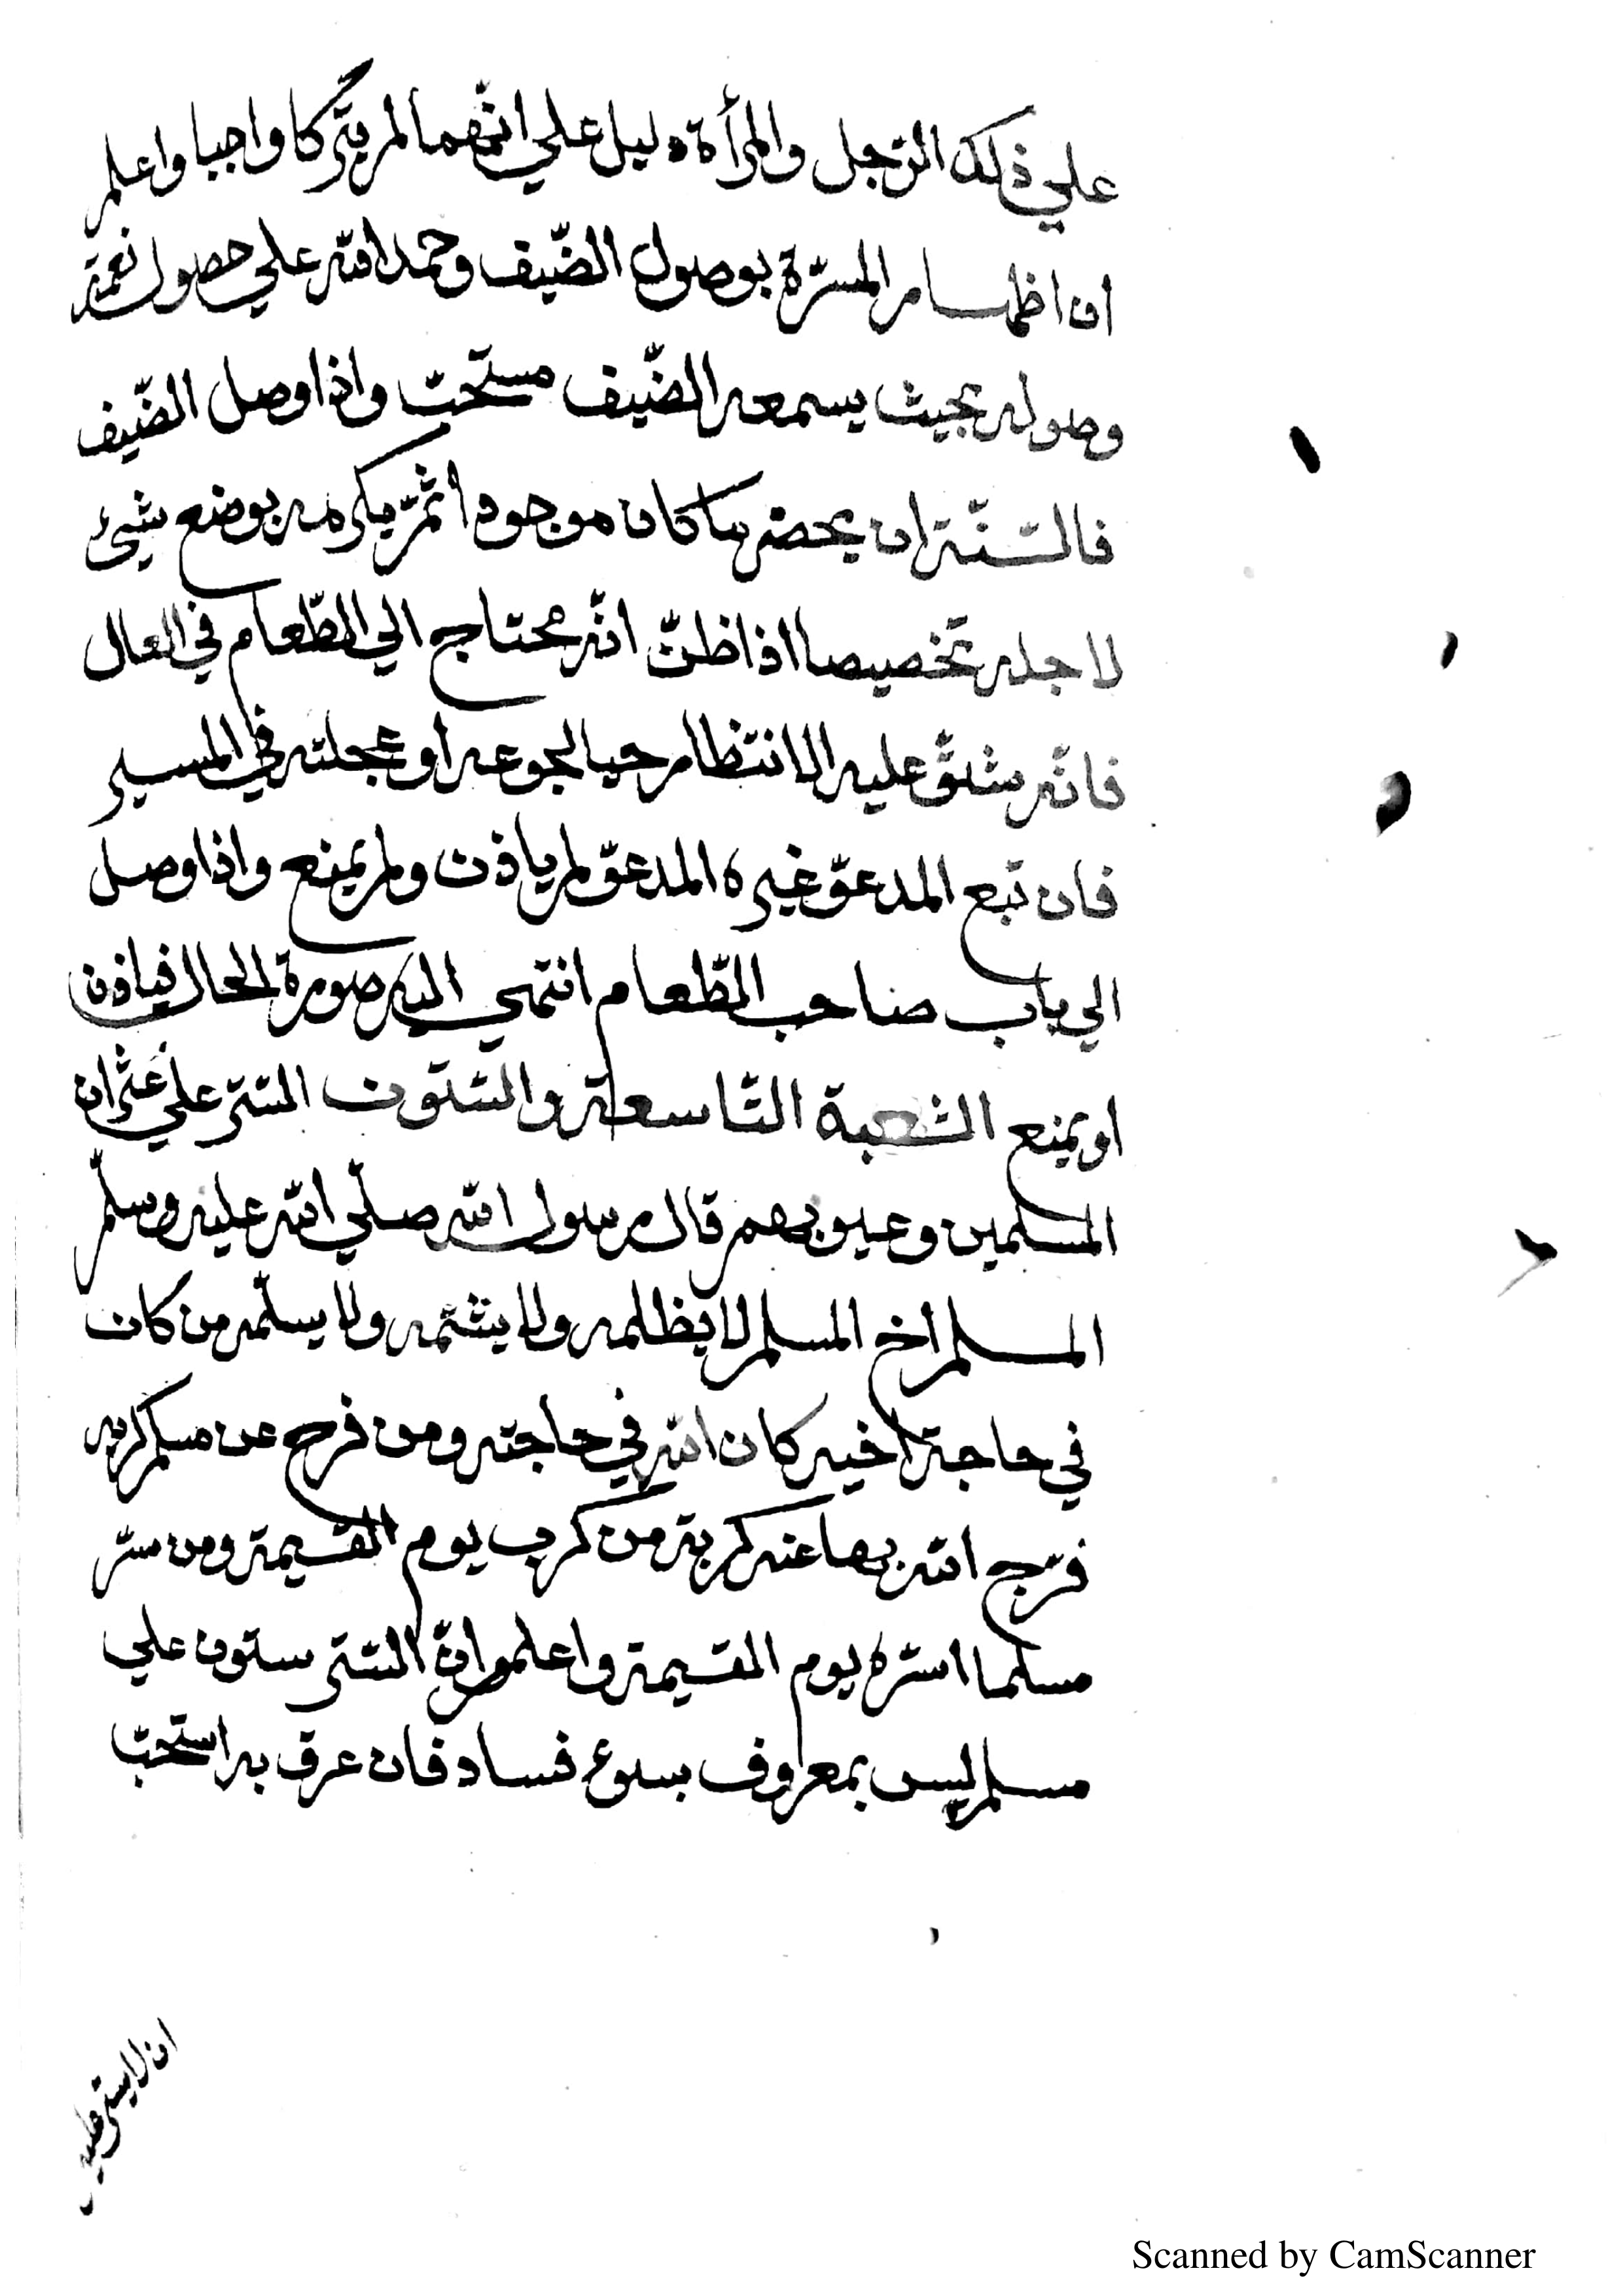 علي ذلك الرّجل والمرأة دليل علي انّهما لم يتركا واجبا واعلم
ان اظهار المسرّة بوصول الضّيف وحمد الله علي حصول نعمة
وصوله بحيث يسمعه الضّيف مستحبّ واذا وصل الضّيف
فالسّنّة ان يحضر ما كان موجودا ثمّ يكرمه بوضع شيئ
لاجله تخصيصا اذا ظنّ انّه محتاج الي الطّعام في الحال
فانّه شقّ عليه الانتظار حيا لجوعه او عجلته في المسير
فان تبع المدعوّ غيره المدعوّ لم ياذن ولم يمنع واذا وصل
الي باب صاحب الطّعام انتهي اليه صورة الحال فياذن
او يمنع الشعبة التّاسعة والسّتّون السّتر علي عثرات
المسلمين وعيوبهم قال رسول الله صلّي الله عليه وسلّم
المسلم اخ المسلم لا يظلمه ولا يشتمه ولا يسلّمه من كان
في حاجة اخيه كان الله في حاجته ومن فرج عن مسلم كربه
فرّج الله بها عنه كربة من كرب يوم القيمة ومن ستر
مسلما استره يوم القيمة واعلموا انّ السّتر ستون علي
مسلم ليس بمعروف بسوء فساد فان عرف به استحبّ
ان لا يستر عليه
Scanned by CamScanner